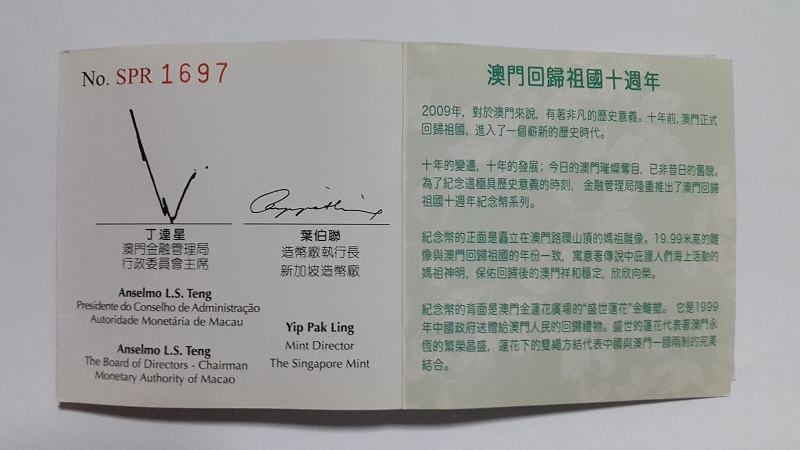 No. SPR 1697
丁連星
澳門金融管理局
行政委員會主席
葉伯聯
造幣廠執行長
新加坡造幣廠
Anselmo L.S. Teng
Presidente do Conselho de Administração
Autoridade Monetária de Macau
Anselmo L.S. Teng
The Board of Directors - Chairman
Monetary Authority of Macao
Yip Pak Ling
Mint Director
The Singapore Mint
澳門回歸祖國十週年
2009年, 對於澳門來說, 有著非凡的歷史意義。十年前, 澳門正式
回歸祖國, 進入了一個嶄新的歷史時代。
十年的變遷, 十年的發展; 今日的澳門璀燦奪目, 已非昔日的舊貌。
為了紀念這極具歷史意義的時刻, 金融管理局隆重推出了澳門回歸
祖國十週年紀念幣系列。
紀念幣的正面是矗立在澳門路環山頂的媽祖雕像。19.99米高的雕
像與澳門回歸祖國的年份一致, 寓意著傳說中庇護人們海上活動的
媽祖神明, 保佑回歸後的澳門祥和穩定, 欣欣向榮。
紀念幣的背面是澳門金蓮花廣場的“盛世蓮花”金雕塑。 它是1999
年中國政府送贈給澳門人民的回歸禮物。盛世的蓮花代表著澳門永
恆的繁榮昌盛, 蓮花下的雙繩方結代表中國與澳門一國兩制的完美
結合。